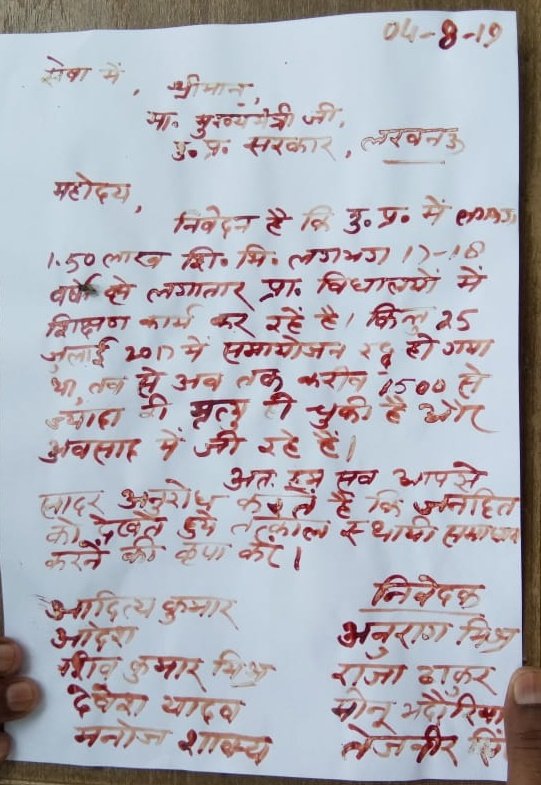 04-8-19
सेवा में,
श्रीमान,
मा. मुख्यमंत्री जी,
उ. प्र. सरकार, लखनऊ
महोदय,
निवेदन है कि उ. प्र. में लगभग
1.50 लाख शि. मि. लगभग 17-18
वर्षो से लगातार प्रा. विद्यालयों में
शिक्षण कार्य कर रहें है। किन्तु 25
जुलाई 2017 में समायोजन रद्द हो गया
था, तब से अब तक करीब 1500 से
ज्यादा की मृत्यु हो चुकी है और
अवसाद में जी रहे हैं।
अतः हम सब आपसे
सादर अनुरोध करते है कि जनहित
को देखते हुये तत्काल स्थायी समाधान
करने की कृपा करें।
निवेदक
आदित्य कुमार
अनुराग मिश्र
आदेश
राजा ठाकुर
शिव कुमार मिश्र
मोनू भदौरिया
देवेश यादव
तेजवीर सिं
मनोज शाक्य